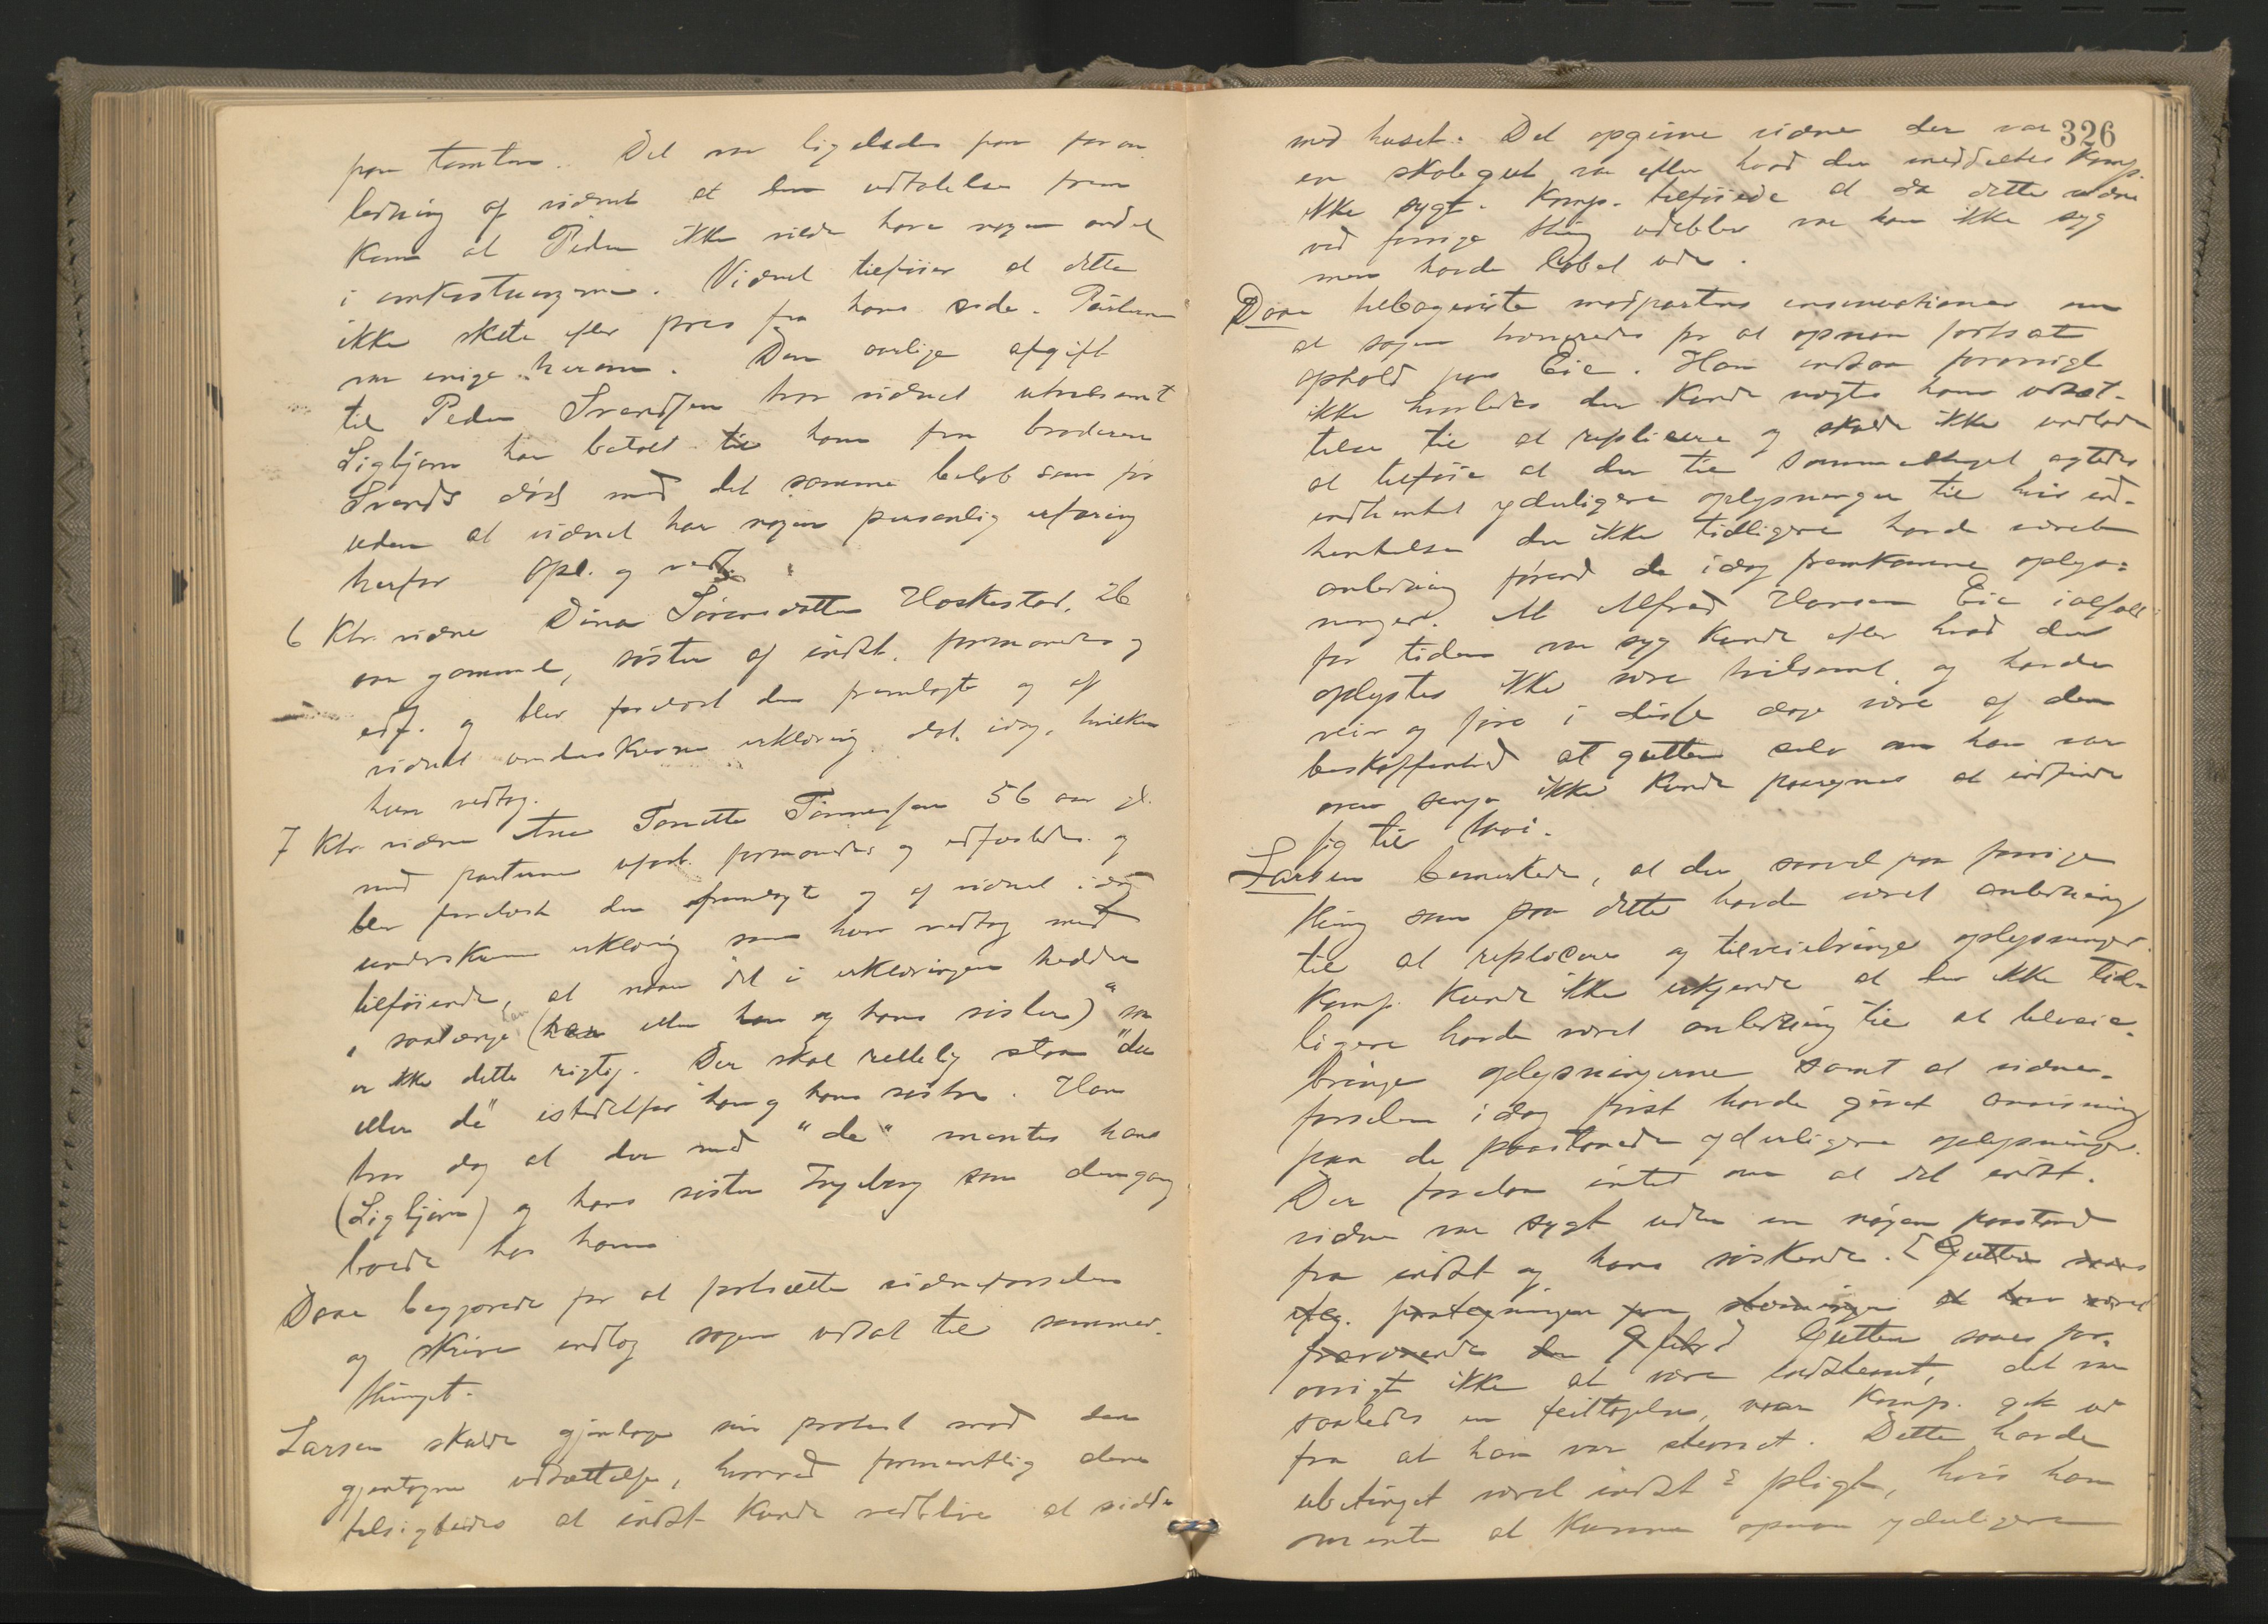 paa tomten. Det var ligeledes paa foran
ledning af vidnet at den udtalelse frem
kom at Peder ikke vilde have nogen andel
i omkostningerne. Vidnet tilføier at dette
ikke skete efter pres fra hans side. Parterne
var enige herom. Den aarlige afgift
til Peder Svendsen tror vidnet uhensamt
Sigbjørn har betalt til ham fra broderen
Svends død med det samme beløb som før
uden at vidnet har nogen personlig erfaring
herfor Opl. og vedt.
6 Ktr. vidne Dina Sørensdatter Haskestad, 26
aar gammel, søster af indst. formanedes og
edf. og blev forelæst den fremlagte og af
vidnet underskrevne erklæring dat. idag, hvilken
hun vedtog.
7 Ktr. vidne Ane Tonette Tønnessen 56 aar gl.
med parterne ubesl. formanedes og edfæstedes og
blev forelæst den fremlagte og af vidnet idag
underskrevne erklæring som hun vedtog med
tilføiende, at naar det i erklæringen hedder
"saalænge (han eller han og hans søster)" saa
er ikke dette rigtig. Der skal rettelig staa "du
eller de" istedetfor han og hans søster. Han
tror dog at der med "de" mentes hans
(Sigbjørn) og hans søster Ingeborg som dengang
boede hos ham
Daae begjærede for at fortsætte vidneførselen
og skrive indlæg sagen udsat til sommer-
thinget.
Larsen skulde gjentage sin protest mod den
gjentagne udsættelse, hvorved formentlig alene
tilsigtedes at indst. kunde vedblive at sidde
326
med huset. Det opgivne vidne der var
en skolegut var efter hvad der meddeltes Komp.
ikke sygt. Komp. tilføiede at da dette vidne
ved forrige thing udeblev var han ikke syg
men havde løbet ude.
Daae tilbageviste modpartens insinuationer om
at sagen trænerede for at opnaa fortsat
ophold paa Eie. Han indsaa forøvrigt
ikke hvorledes der kunde nægtes ham udsæt-
telse til at replicere og skulde ikke undlade
at tilføie at der til sommerthinget agtedes
indhentet yderligere oplysninger til hvis ind-
hentelse der ikke tidligere havde været
anledning førend de idag fremkomne oplys-
ninger. At Alfred Hansen Eie ialfald
for tiden var syg kunde efter hvad der
oplystes ikke være tvilsomt og havde
veir og føre i disse dage være af den
beskaffenhed at gutten selv om han var
oven senge ikke kunde paaregnes at indfinde
sig til Moi.
Larsen bemærkede, at der saavel paa forrige
thing som paa dette havde været anledning
til at replicere og tilveiebringe oplysninger.
Komp. kunde ikke erkjende at der ikke tid-
ligere havde været anledning til at tilveie-
bringe oplysningerne samt at vidne-
førselen idag først havde givet anvisning
paa de paastaaede yderligere oplysninger.
Der forelaa intet om at det indst.
vidne var sygt uden en nøgen paastand
fra indst. og hans søskende. [Gutten saaes
iflg. paategningen paa stevningen at have været
fraværende den 9 febr] Gutten saaes for-
øvrigt ikke at være indstevnt, det var
saaledes en feiltagelse, naar Komp. gik ud
fra at han var stevnet. Dette havde
ubetinget været indst.s pligt, hvis han
mente at kunne opnaa yderligere